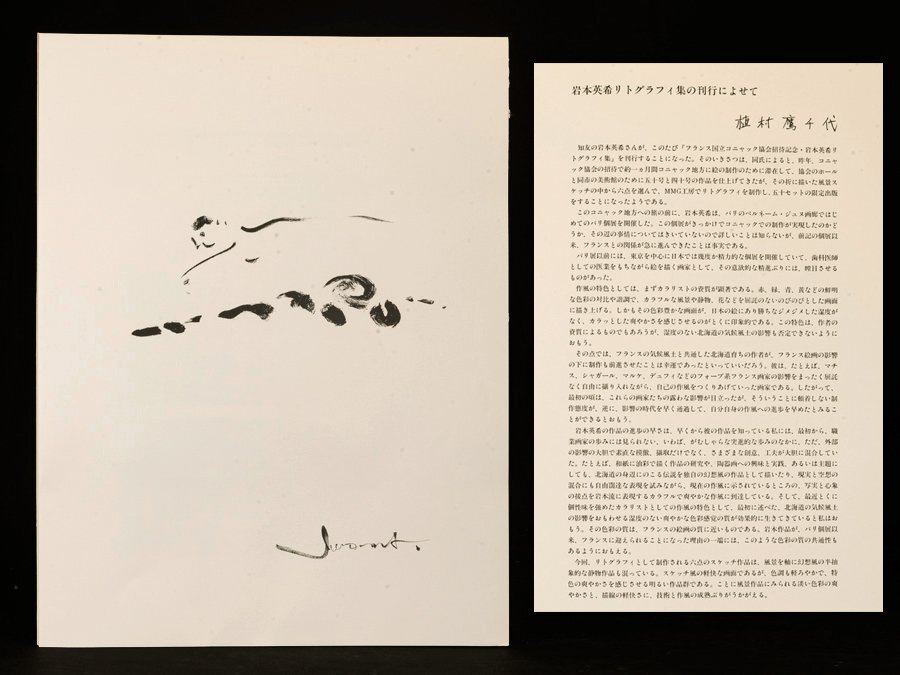 Iwamoto.
岩本英希リトグラフィ集の刊行によせて
植村鷹千代
知友の岩本英希さんが、このたび「フランス国立コニャック協会招待記念・岩本英希リ
トグラフィ集」を刊行することになった。そのいきさつは、同氏によると、昨年、コニャ
ック協会の招待で約一ヵ月間コニャック地方に絵の制作のために滞在して、協会のホール
と同市の美術館のために五十号と四十号の作品を仕上げてきたが、その折に描いた風景ス
ケッチの中から六点を選んで、MMG工房でリトグラフィを制作し、五十セットの限定出版
をすることになったようである。
このコニャック地方への旅の前に、岩本英希は、パリのベルネーム・ジュヌ画廊ではじ
めてのパリ個展を開催した。この個展がきっかけでコニャックでの制作が実現したのかど
うか、その辺の事情についてはきいていないので詳しいことは知らないが、前記の個展以
来、フランスとの関係が急に進んできたことは事実である。
パリ展以前には、東京を中心に日本では幾度か精力的な個展を開催していて、歯科医師
としての医業をもちながら絵を描く画家として、その意欲的な精進ぶりには、瞠目させる
ものがあった。
作風の特色としては、まずカラリストの資質が顕著である。赤、緑、青、黄などの鮮明
な色彩の対比や諧調で、カラフルな風景や静物、花などを屈託のないのびのびとした画面
に描き上げる。しかもその色彩豊かな画面が、日本の絵にあり勝ちなジメジメした湿度が
なく、カラッとした爽やかさを感じさせるのがとくに印象的である。この特色は、作者の
資質によるものでもあろうが、湿度のない北海道の気候風土の影響も否定できないように
おもう。
その点では、フランスの気候風土と共通した北海道育ちの作者が、フランス絵画の影響
の下に制作も前進させたことは幸運であったといっていいだろう。彼は、たとえば、マチ
ス、シャガール、マルケ、デュフィなどのフォーブ系フランス画家の影響をまったく屈託
なく自由に撮り入れながら、自己の作風をつくりあげていった画家である。したがって、
最初の頃は、これらの画家たちの露わな影響が目立ったが、そういうことに頓着しない制
作態度が、逆に、影響の時代を早く通過して、自分自身の作風への進歩を早めたとみるこ
とができるとおもう。
岩本英希の作品の進歩の早さは、早くから彼の作品を知っている私には、最初から、職
業画家の歩みには見られない、いわば、がむしゃらな突進的な歩みのなかに、ただ、外部
の影響の大胆で素直な模倣、摂取だけでなく、さまざまな創意、工夫が大胆に混合してい
た。たとえば、和紙に油彩で描く作品の研究や、陶器画への興味と実践、あるいは主題に
しても、北海道の身辺にのこる伝説を独自の幻想風の作品として描いたり、現実と空想の
混合にも自由闊達な表現を試みながら、現在の作風に示されているところの、写実と心象
の接点を岩本流に表現するカラフルで爽やかな作風に到達している。そして、最近とくに
個性味を強めたカラリストとしての作風の特色として、最初に述べた、北海道の気候風土
の影響をおもわせる湿度のない爽やかな色彩感覚の質が効果的に生きてきていると私はお
もう。その色彩の質は、フランスの絵画の質に近いものである。岩本作品が、パリ個展以
来、フランスに迎えられることになった理由の一端には、このような色彩の質の共通性も
あるようにおもえる。
今回、リトグラフィとして制作される六点のスケッチ作品は、風景を軸に幻想風の半抽
象的な静物作品も混っている。スケッチ風の軽快な画面であるが、色調も軽ろやかで、特
色の爽やかさを感じさせる明るい作品群である。ことに風景作品にみられる淡い色彩の爽
やかさと、描線の軽快さに、技術と作風の成熟ぶりがうかがえる。